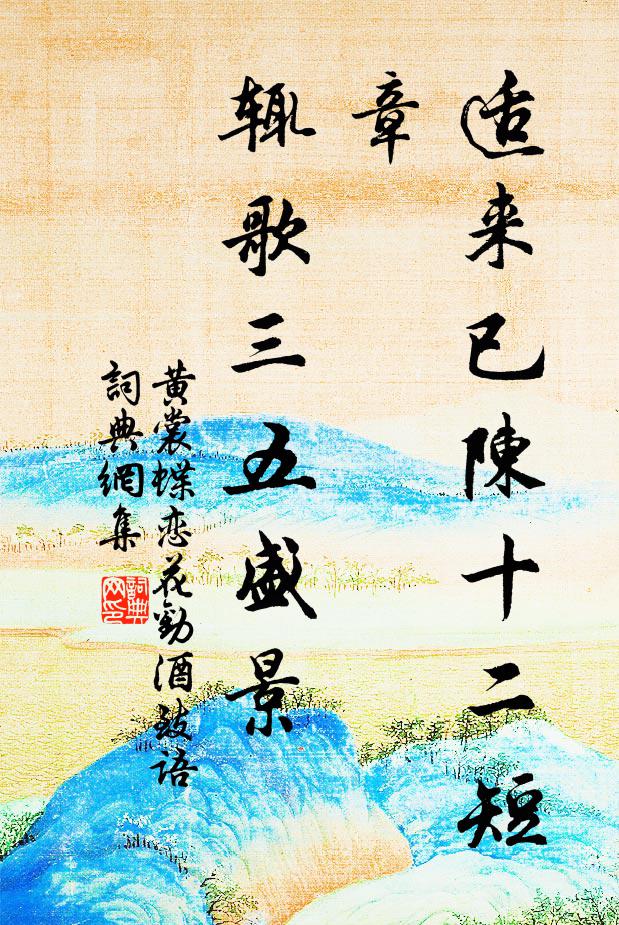 适来已陳十二短
章
辄歌三五盛景
黄裳蝶恋花勸酒致語
詞典網集
詞典网印